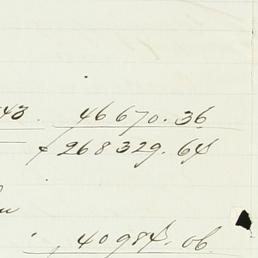 43. 46670.36
$268329.64
40984.06